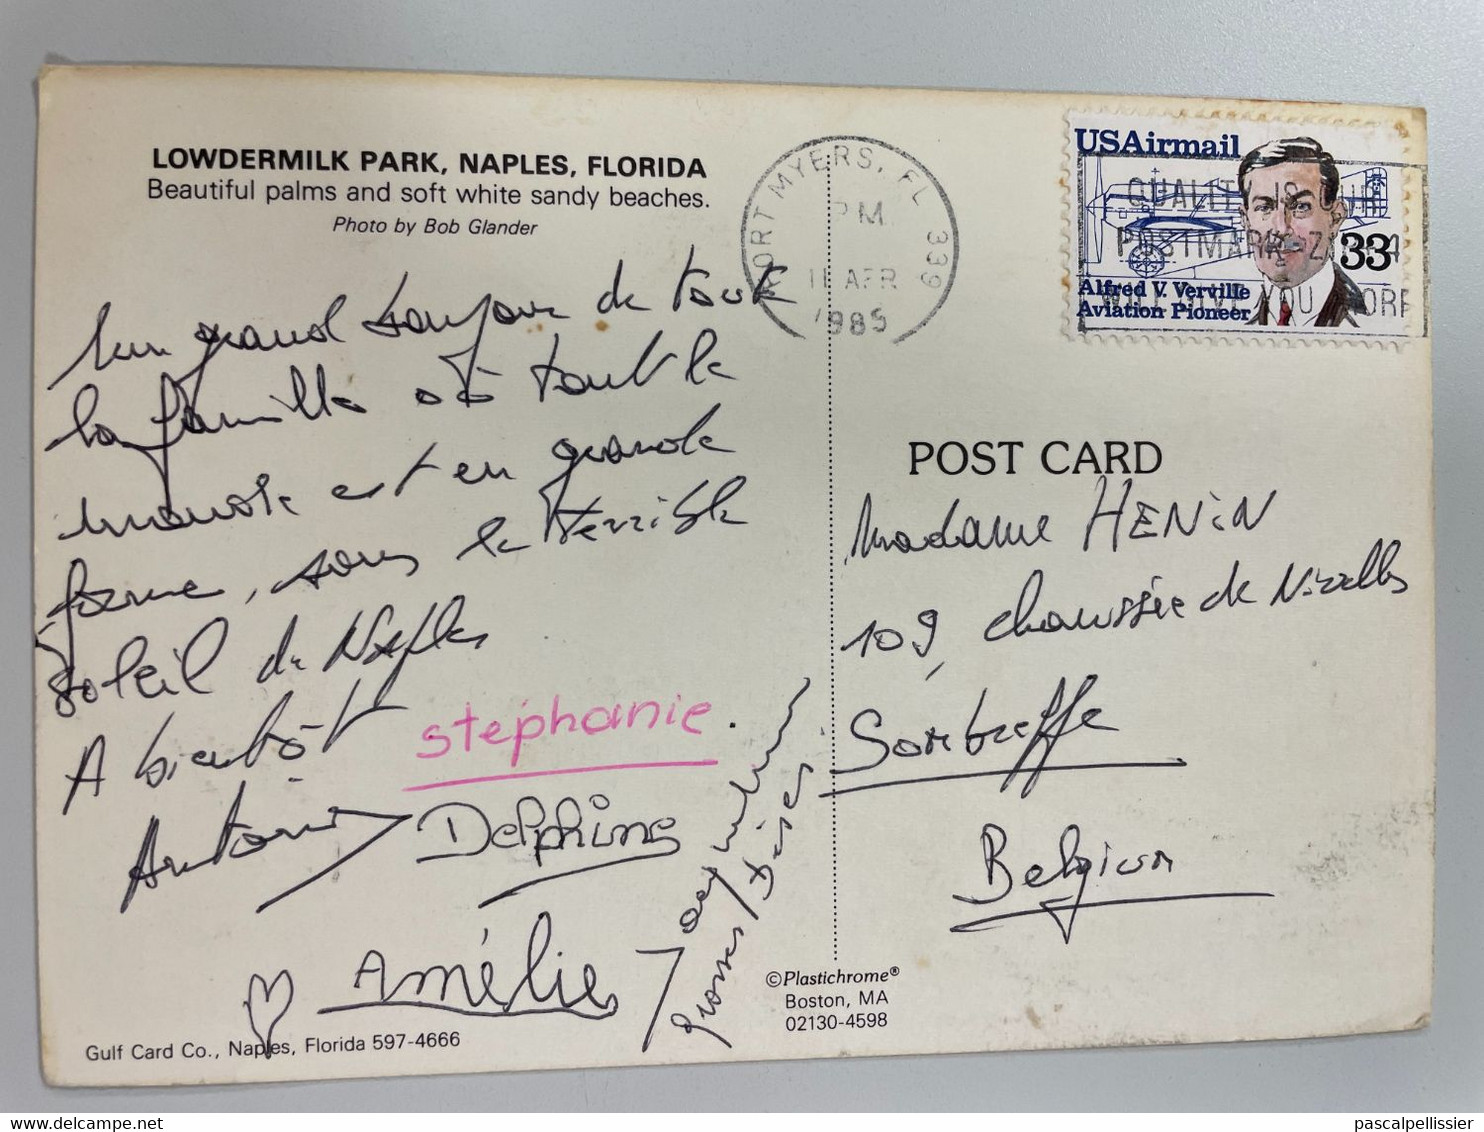 LOWDERMILK PARK, NAPLES, FLORIDA
Beautiful palms and soft white sandy beaches.
Photo by Bob Glander
Un grand bonjour de toute
la famille où tout le
monde est en grande
forme, sous le terrible
soleil de Naples
A bientôt
stéphanie.
Antoni
Delphine
Amélie
Jacqueline
grosses bises
Gulf Card Co., Naples, Florida 597-4666
©Plastichrome®
Boston, MA
02130-4598
FORT MYERS, FL 339
PM
11 APR
1985
USAirmail
33
Alfred V. Verville
Aviation Pioneer
QUALITY IS OUR
POSTMARK ZIP+4
WILL GIVE YOU MORE
POST CARD
Madame HENIN
109, chaussée de Nivelles
Sombreffe
Belgium
pascalpellissier